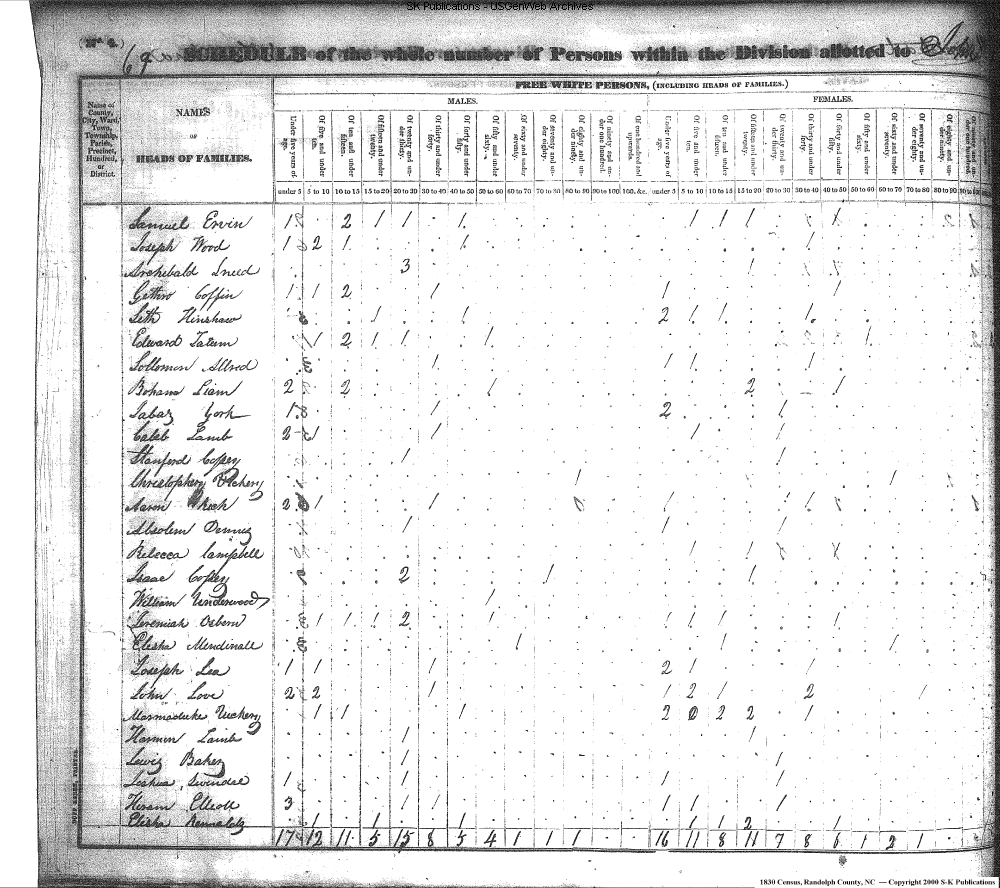 SK Publications - USGenWeb Archives
(No. 4.)
69 SCHEDULE of the whole number of Persons within the Division allotted to
FREE WHITE PERSONS, (INCLUDING HEADS OF FAMILIES.)
MALES. FEMALES.
Name of County, City, Ward, Town, Township, Parish, Precinct, Hundred, or District.
NAMES
OF
HEADS OF FAMILIES.
Under five years of age. Of five and under ten. Of ten and under fifteen. Of fifteen and under twenty. Of twenty and under thirty. Of thirty and under forty. Of forty and under fifty. Of fifty and under sixty. Of sixty and under seventy. Of seventy and under eighty. Of eighty and under ninety. Of ninety and under one hundred. Of one hundred and upwards. Under five years of age. Of five and under ten. Of ten and under fifteen. Of fifteen and under twenty. Of twenty and under thirty. Of thirty and under forty. Of forty and under fifty. Of fifty and under sixty. Of sixty and under seventy. Of seventy and under eighty. Of eighty and under ninety.
under 5 5 to 10 10 to 15 15 to 20 20 to 30 30 to 40 40 to 50 50 to 60 60 to 70 70 to 80 80 to 90 90 to 100 100, &c. under 5 5 to 10 10 to 15 15 to 20 20 to 30 30 to 40 40 to 50 50 to 60 60 to 70 70 to 80 80 to 90 90 to 100
Samuel Ervin 1 2 1 1 1 1 1 1 1
Joseph Wood 1 2 1 1 1
Archibald 3 1
Gethro Coffin 1 1 2 1 1 1
Seth Hinshaw 1 1 2 1 1 1
Edward Tatum 1 2 1 1 1 1
Sollomon Allred 1 1 1 1
Liam 2 2 1 2 1
York 1 1 2 1
Caleb Lamb 2 1 1 1 1
Stanford Cofsey 1 1
1 1
Aaron 2 1 1 1 1 1
Absolem 1 1 1
Rebecca Campbell 1 1
Isaac Cofsey 2 1 1
William Underwood 1
Jeremiah Osborn 1 1 1 2 1 1 1 1 1
Elisha Mendinall 1 1 1
Joseph Lea 1 1 1 2 1 1
John Love 2 2 1 1 2 1 2 1
Marmaduke Vickery 1 1 1 2 2 2 1
Harmon Lamb 1 1
Lewis Baker 1 1
Joshua 1 1 1 1
Hiram Elliott 3 1 1 1 1 1
Elisha 1 1 1 1 1 2 1
17 12 11 5 15 8 5 4 1 1 1 16 11 8 11 7 8 6 1 2 1
1830 Census, Randolph County, NC — Copyright 2000 S-K Publications